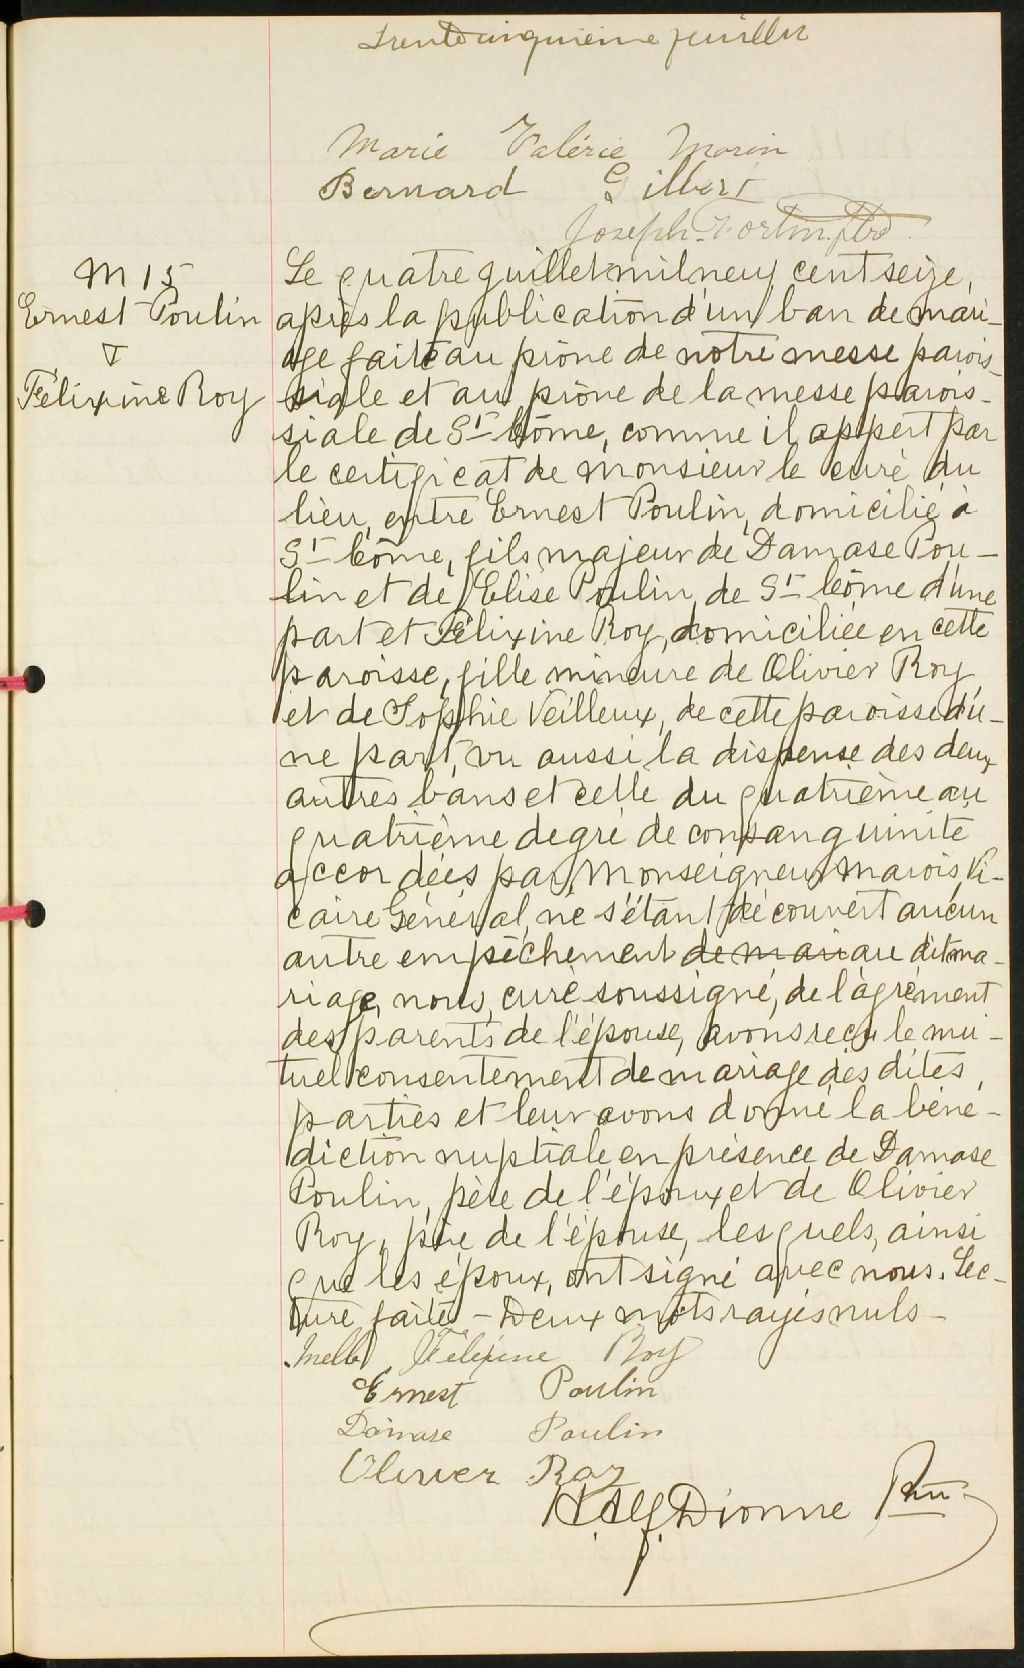 Trente cinquième feuillet
Marie Valérie Morin
Bernard Gilbert
Joseph Fortin, ptre
M 15
Ernest Poulin
&
Félixine Roy
Le quatre juillet mil neuf cent seize,
après la publication d'un ban de mari-
age faite au prône de notre messe parois-
siale et au prône de la messe parois-
siale de St Côme, comme il appert par
le certificat de monsieur le curé du
lieu, entre Ernest Poulin, domicilié à
St Côme, fils majeur de Damase Pou-
lin et de Elise Poulin, de St Côme d'une
part et Félixine Roy, domiciliée en cette
paroisse, fille mineure de Olivier Roy
et de Sophie Veilleux, de cette paroisse d'u-
ne part, vu aussi la dispense des deux
autres bans et celle du quatrième au
quatrième degré de consanguinité
accordées par Monseigneur Marois, Vi-
caire Général, ne s'étant découvert aucun
autre empêchement de mari au dit ma-
riage, nous, curé soussigné, de l'agrément
des parents de l'épouse, avons reçu le mu-
tuel consentement de mariage des dites
parties et leur avons donné la béné-
diction nuptiale en présence de Damase
Poulin, père de l'époux et de Olivier
Roy, père de l'épouse, lesquels, ainsi
que les époux, ont signé avec nous. Lec-
ture faite - Deux mots rayés nuls -
Melle Félixine Roy
Ernest Poulin
Damase Poulin
Olivier Roy
Dionne Ptre